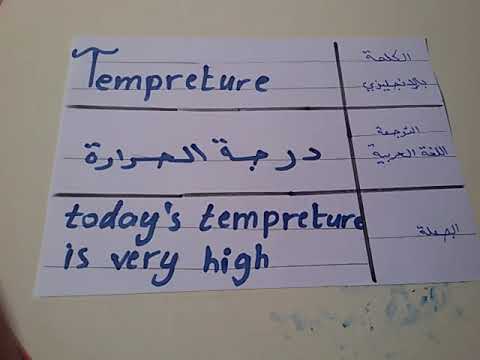 Tempreture
الكلمة
بالانجليزي
درجة الحرارة
الترجمة
اللغة العربية
today's tempreture
is very high
الجملة